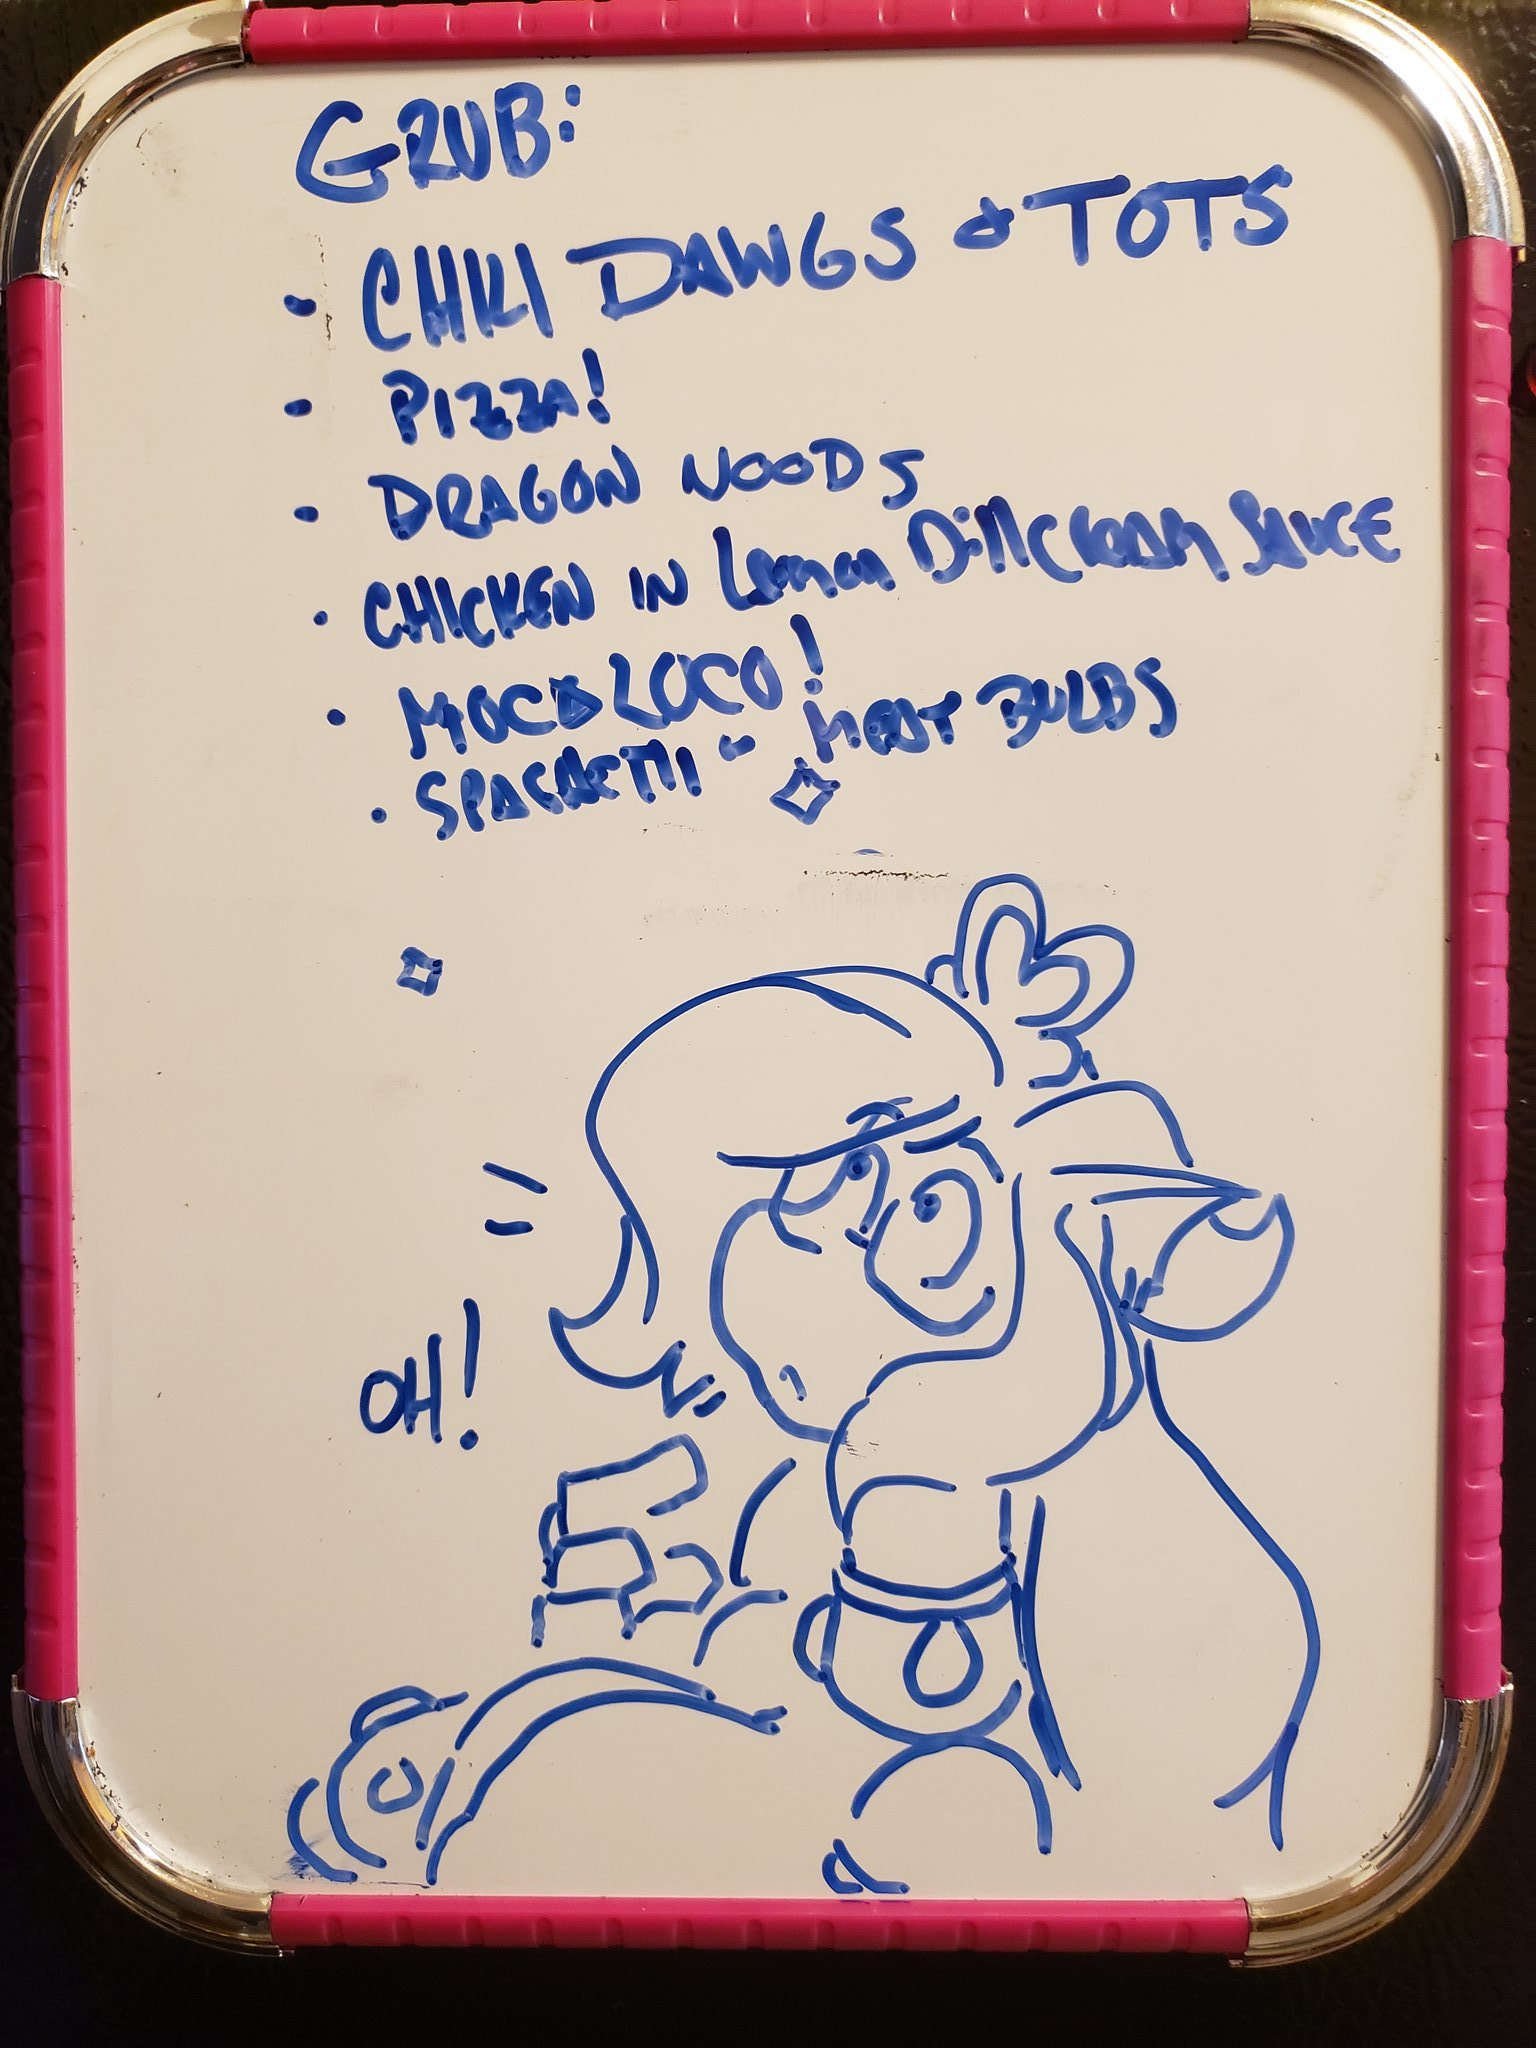 GRUB:
• CHKI DAWGS & TOTS
• PIZZA!
• DRAGON NOODS
• CHICKEN IN Lemon Dill CREAM SAUCE
• MOCO LOCO!
• SPAGHETTI - MEAT BULBS
OH!